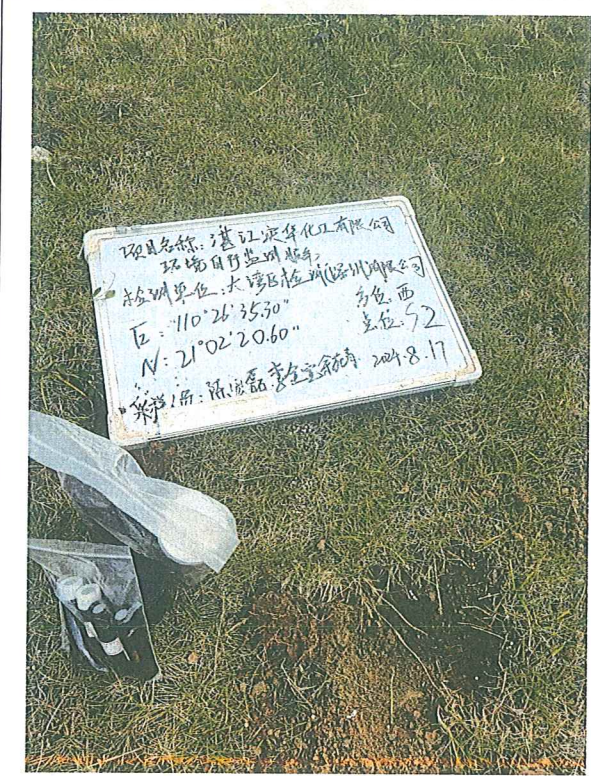 项目名称:湛江滨华化工有限公司
环境自行监测服务
检测单位:大湾区检测(深圳)有限公司
E:110°26′35.30″ 方位:西
N:21°02′20.60″ 点位:S2
采样人员:陈 2024.8.17